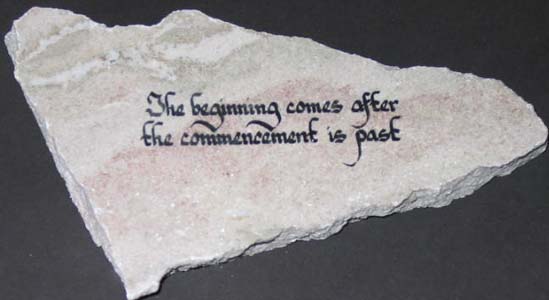 The beginning comes after
the commencement is past